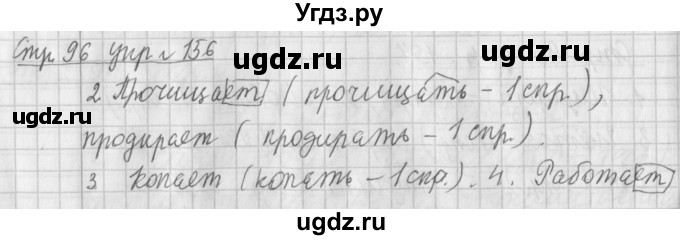 Угдз.ру
Стр 96 упр № 156
ugdz.ru ugdz.ru
2 Прочищает (прочищать – 1 спр.),
ugdz.ru
продирает (продирать – 1 спр.).
ugdz.ru ugdz.ru
3 копает (копать – 1 спр.). 4. Работает
ugdz.ru